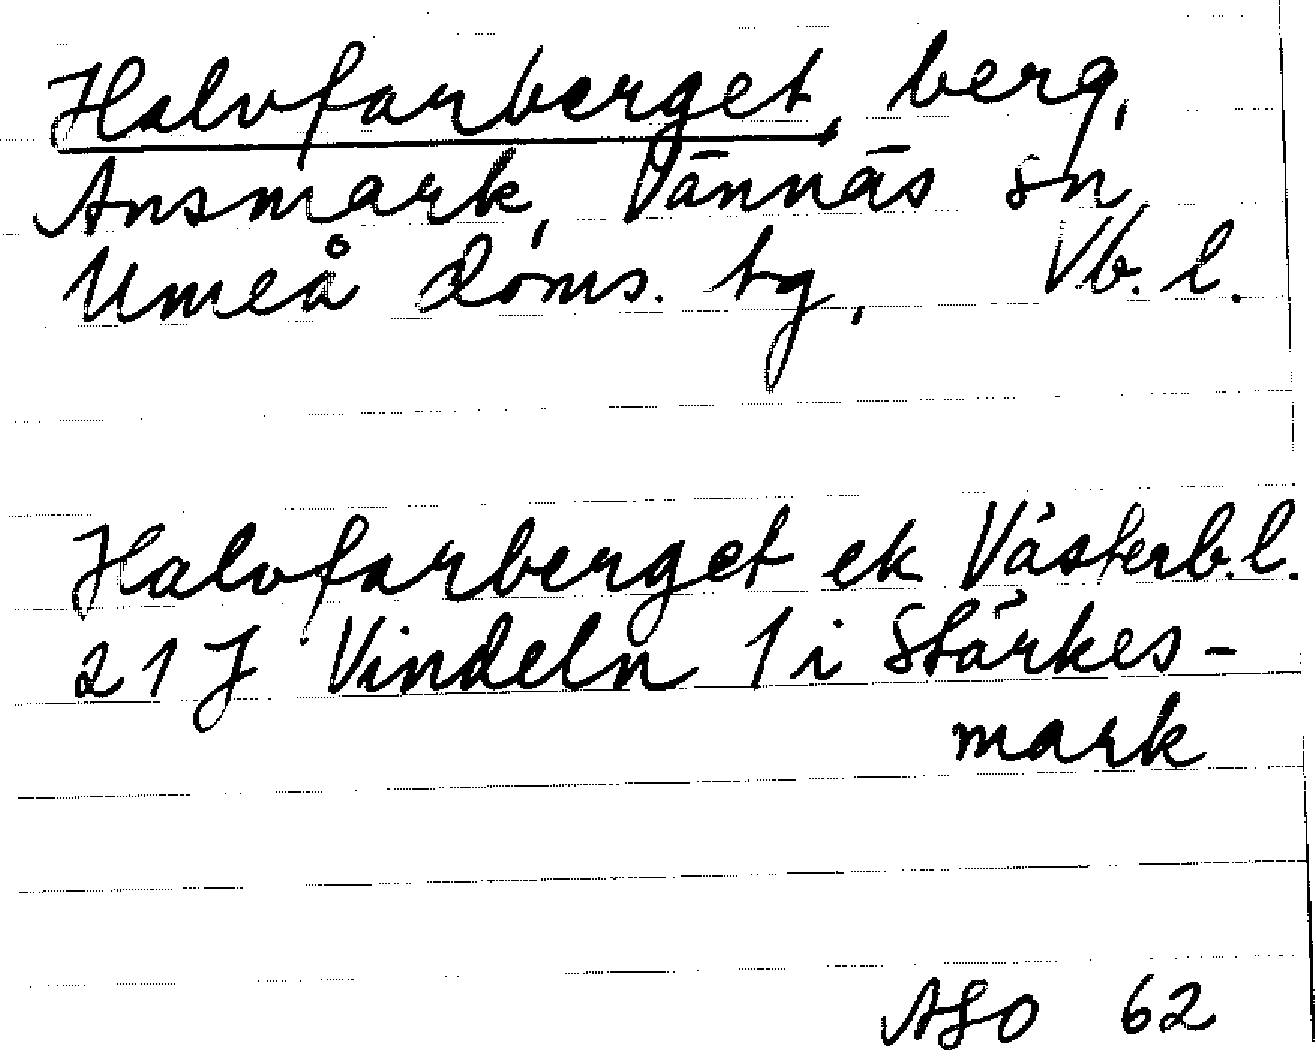 Halvfarberget, berg,
Ansmark, Vännäs sn,
Umeå doms. tg, Vb. l.
Halvfarberget ek Västerb.l.
21 J Vindeln 1 i Stärkes-
mark
ASO 62